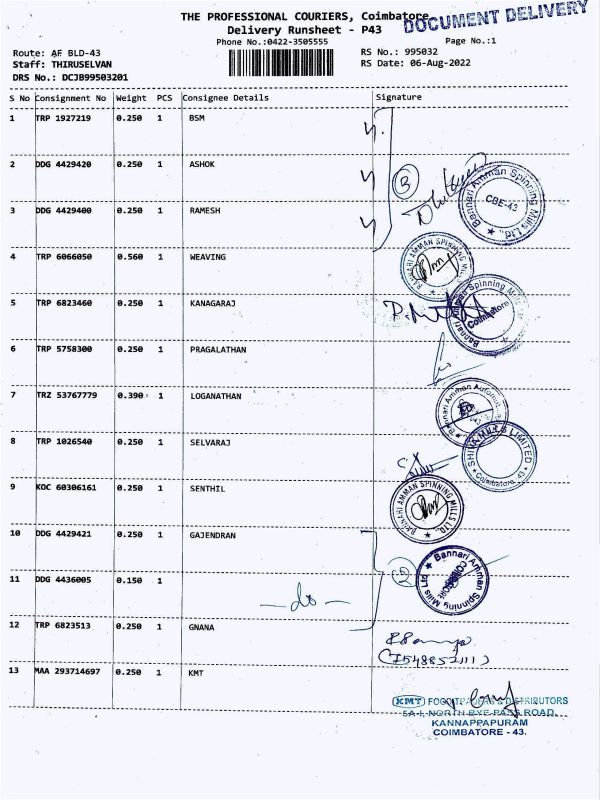 THE PROFESSIONAL COURIERS, Coimbatore
DOCUMENT DELIVERY
Delivery Runsheet - P43
Phone No.:0422-3505555
Page No.:1
Route: AF BLD-43
RS No.: 995032
Staff: THIRUSELVAN
RS Date: 06-Aug-2022
DRS No.: DCJB99503201
S No Consignment No Weight PCS Consignee Details Signature
1 TRP 1927219 0.250 1 BSM
2 DDG 4429420 0.250 1 ASHOK
3
Bannari Amman Spinning Mills Ltd.,
CBE-43
3 DDG 4429400 0.250 1 RAMESH
4 TRP 6066050 0.560 1 WEAVING
BANNARI AMMAN SPINNING MILLS
5 TRP 6823460 0.250 1 KANAGARAJ
Bannari Amman Spinning Mills
Coimbatore
6 TRP 5758300 0.250 1 PRAGALATHAN
7 TRZ 53767779 0.390 1 LOGANATHAN
Bannari Amman
8 TRP 1026540 0.250 1 SELVARAJ
SHIVA MILLS LIMITED
Coimbatore. 43
9 KOC 60306161 0.250 1 SENTHIL
BANNARI AMMAN SPINNING MILLS LTD.,
10 DDG 4429421 0.250 1 GAJENDRAN
2
Bannari Amman Spinning Mills Ltd
11 DDG 4436005 0.150 1
- do -
12 TRP 6823513 0.250 1 GNANA
13 MAA 293714697 0.250 1 KMT
KMT DISTRIBUTORS
5A-1, NORTH BYE PASS ROAD,
KANNAPPAPURAM
COIMBATORE - 43.